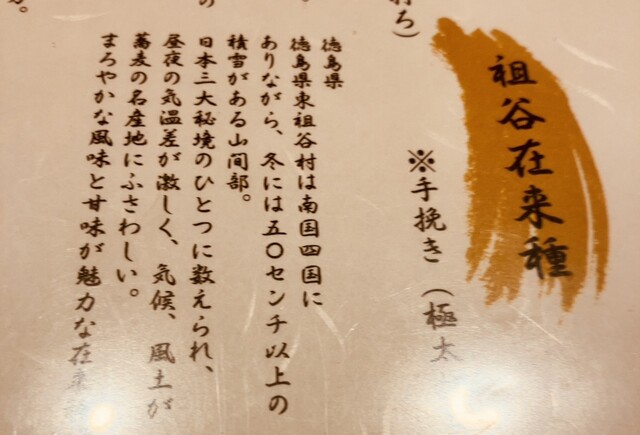 打ち）
祖谷在来種
※手挽き（極太
徳島県
徳島県東祖谷村は南国四国に
ありながら、冬には五〇センチ以上の
積雪がある山間部。
日本三大秘境のひとつに数えられ、
昼夜の気温差が激しく、気候、風土が
蕎麦の名産地にふさわしい。
まろやかな風味と甘味が魅力な在来種
の
か。